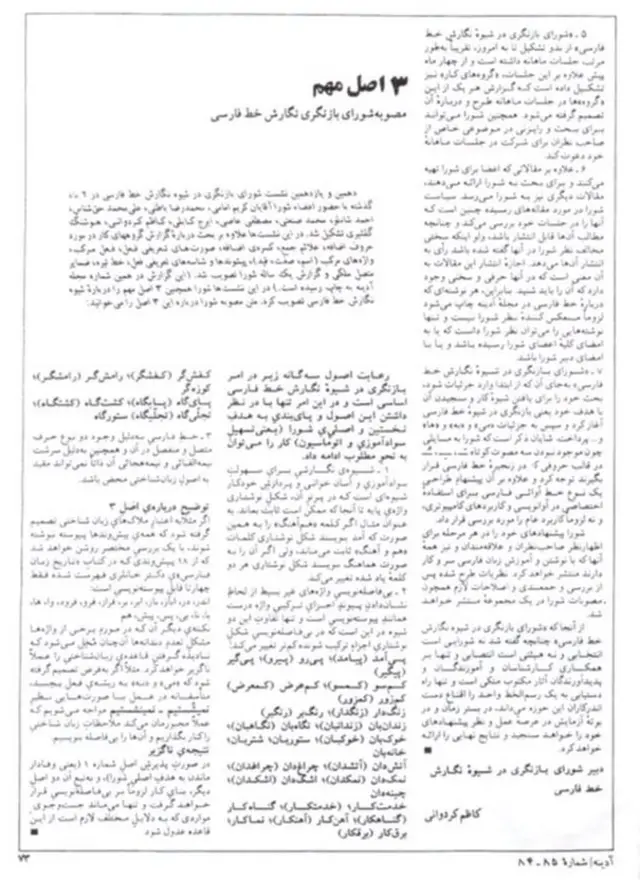 ۵ ـ «شورای بازنگری در شیوهٔ نگارش خط
فارسی» از بدو تشکیل تا به امروز، تقریباً به‌طور
مرتب جلسات ماهانه داشته است و از چهار ماه
پیش علاوه بر این جلسات، «گروه‌های کار» نیز
تشکیل داده است که گزارش هر یک از این
«گروه»ها در جلسات ماهانه طرح و دربارهٔ آن
تصمیم گرفته می‌شود. همچنین شورا می‌تواند
برای بحث و رایزنی در موضوعی خاص از
صاحب نظران برای شرکت در جلسات ماهانهٔ
خود دعوت کند.
۶ ـ علاوه بر مقالاتی که اعضا برای شورا تهیه
می‌کنند و برای بحث به شورا ارائه می‌دهند،
مقالات دیگری نیز به شورا می‌رسد. سیاست
شورا در مورد مقاله‌های رسیده چنین است که
آنها را در جلسات خود بررسی می‌کند و چنانچه
مطالب آن‌ها قابل انتشار باشد، ولو اینکه سخنی
مخالف نظر شورا در آنها گفته شده باشد رأی به
انتشار آن‌ها می‌دهد. اجازهٔ انتشار این مقالات به
آن معنی است که در آنها حرفی و سخنی وجود
دارد که آن را باید شنید. بنابراین، هر نوشته‌ای که
دربارهٔ خط فارسی در مجلهٔ آدینه چاپ می‌شود
لزوماً منعکس کنندهٔ نظر شورا نیست و تنها
نوشته‌هایی را می‌توان نظر شورا دانست که یا به
امضای کلیهٔ اعضای شورا رسیده باشد و یا با
امضای دبیر شورا باشد.
۷ ـ «شورای بازنگری در شیوهٔ نگارش خط
فارسی» به‌جای آن که از ابتدا وارد جزئیات شود،
بحث خود را برای یافتن شیوهٔ کار و سنجیدن آن
با هدف خود یعنی بازنگری در شیوهٔ خط فارسی
آغاز کرد و سپس به جزئیات «می» و «به» و «ها»
و... پرداخت. شایان ذکر است که شورا به مسایلی
چون موجود نبودن سه مصوت کوتاه
در قالب حروفی که در زنجیرهٔ خط فارسی قرار
بگیرند توجه کرد و علاوه بر آن پیشنهاد طراحی
یک نوع خط آوائی فارسی برای استفادهٔ
اختصاصی در آوانویسی و کاربردهای کامپیوتری،
و نه لزوماً کاربرد عام را مورد بررسی قرار داد.
شورا پیشنهادهای خود را در هر مرحله برای
اظهارنظر صاحب‌نظران و علاقه‌مندان و نیز همه
آنها که با نوشتن و آموزش زبان فارسی سر و کار
دارند منتشر خواهد کرد. نظریات طرح شده پس
از بررسی و جمعبندی و اصلاحات لازم همچون
مصوبات شورا در یک مجموعهٔ منتشر خواهد
شد.
از آنجا که «شورای بازنگری در شیوهٔ نگارش
خط فارسی» چنانچه گفته شد نه شورایی است
انتخابی و نه هیئتی است انتصابی و تنها بر
همکاری کارشناسان و آموزندگان و
پدیدآورندگان آثار مکتوب متکی است و تنها راه
دستیابی به یک رسم‌الخط واحد را اقناع دست
اندرکاران این حوزه می‌داند، در بستر زمان و در
بوتهٔ آزمایش در عرصهٔ عمل و نظر پیشنهادهای
خود را خواهد سنجید و نتایج نهایی را ارائه
خواهد کرد.
دبیر شورای بازنگری در شیوهٔ نگارش
خط فارسی
کاظم کردوانی
۳ اصل مهم
مصوبه شورای بازنگری نگارش خط فارسی
دهمین و یازدهمین نشست شورای بازنگری در شیوه نگارش خط فارسی در ۲ ماه
گذشته با حضور اعضاء شورا آقایان کریم امامی، محمدرضا باطنی، علی‌محمد حق‌شناس،
احمد شاملو، محمد صنعتی، مصطفی عاصی، ایرج کابلی، کاظم کردوانی، هوشنگ
گلشیری تشکیل شد. در این نشست‌ها علاوه بر بحث دربارهٔ گزارش گروههای کار در مورد
حروف اضافه، علائم جمع، کسره‌ی اضافه، صورت‌های تصریفی فعل، فعل مرکب،
واژه‌های مرکب (اسم، صفت، قید)، پیشوندها و شناسه‌های تعریفی فعل، خط تیره، ضمایر
متصل ملکی و گزارش یک سالهٔ شورا تصویب شد. (این گزارش در همین شماره مجله
آدینه به چاپ رسیده است.) در این نشست‌ها شورا همچنین ۳ اصل مهم را دربارهٔ شیوه
نگارش خط فارسی تصویب کرد. متن مصوبه شورا درباره این ۳ اصل را می‌خوانید:
رعایت اصول سه‌گانه زیر در امر
بازنگری در شیوهٔ نگارش خط فارسی
اساسی است و در این امر تنها با در نظر
داشتن این اصول و پای‌بندی به هدف
نخستین و اصلی‌ی شورا (یعنی تسهیل
سوادآموزی و اتوماسیون) کار را می‌توان
به نحو مطلوب ادامه داد.
۱ ـ شیوه‌ی نگارشی برای سهولت
سوادآموزی و آسان خوانی و پردازش خودکار
شیوه‌ای است که در پرتو آن، شکل نوشتاری
واژه‌ی پایه تا آنجا که ممکن است ثابت بماند. به
عنوان مثال اگر کلمه «هم‌آهنگ» را به همین
صورت که آمد بنویسند شکل نوشتاری کلمات
هم و آهنگ ثابت می‌ماند، ولی اگر آن را به
صورت هماهنگ بنویسند شکل نوشتاری هر دو
کلمهٔ یاد شده تغییر می‌کند.
۲ ـ بی‌فاصله‌نویسی واژه‌های غیر بسیط از لحاظ
نشان‌دادن پیوند اجزای ترکیبی واژه درست
همانند پیوسته‌نویسی است و تنها تفاوت این دو
شیوه در این است که در بی‌فاصله‌نویسی شکل
نوشتاری اجزاء ترکیب شونده کم‌تر تغییر می‌کند:
پی‌آمد (پیامد)؛ پی‌رو (پیرو)؛ پی‌گیر
(پیگیر)
کم‌سو (کمسو)؛ کم‌عرض (کمعرض)
کم‌زور (کمزور)
زنگ‌دار (زنگدار)؛ رنگ‌بر (رنگبر)
زندان‌بان (زندانبان)؛ نگاه‌بان (نگاهبان)؛
خوک‌بان (خوکبان)؛ ستوربان؛ شتربان؛
خانه‌بان
آتش‌دان (آتشدان)؛ چراغ‌دان (چراغدان)؛
نمک‌دان (نمکدان)؛ اشک‌دان (اشکدان)؛
چینه‌دان
خدمت‌کار؛ (خدمتکار)؛ گناه‌کار
(گناهکار)؛ آهن‌کار (آهنکار)؛ نماکار؛
برق‌کار (برقکار)
کفش‌گر (کفشگر)؛ رامش‌گر (رامشگر)؛
کوزه‌گر
پای‌گاه (پایگاه)؛ کشت‌گاه (کشتگاه)؛
تجلی‌گاه (تجلیگاه)؛ ستورگاه
۳ ـ خط فارسی به‌دلیل وجود دو نوع حرف
متصل و منفصل در آن و همچنین به‌دلیل سرشت
نیمه‌الفبائی و نیمه‌هجائی آن ذاتاً نمی‌تواند مقید
به اصول زبان‌شناختی محض باشد.
توضیح درباره‌ی اصل ۳
اگر مثلا به اعتبار ملاک‌های زبان شناختی تصمیم
گرفته شود که همه‌ی پیش‌وندها پیوسته نوشته
شوند، با یک بررسی مختصر روشن خواهد شد
که از ۱۸ پیش‌وندی که در کتاب «تاریخ زبان
فارسی»ی دکتر خانلری فهرست شده فقط
چهارتا قابل پیوسته‌نویسی است:
اندر، در، آباز، باز، ابر، بر، فراز، فرو، فرود، وا، ها،
با، نا، بی، پس، پیش، هم
نکته‌ی دیگر آن که در مورد برخی از واژه‌ها
مشکل تعدد دندانه‌ها آن‌چنان مُخل می‌شود که
نادیده گرفتن قاعده‌ی زبان‌شناختی را عملاً
ناگزیر خواهد کرد. مثلاً اگر به‌فرض تصمیم گرفته
شود که «می» و «نه» به ریشه‌ی فعل بچسبد،
متأسفانه در عمل با صورت‌هایی نظیر
نمیشستیم ـ نمینشستیم مواجه می‌شویم که
عملاً مجبورمان می‌کند ملاحظات زبان شناختی
را کنار بگذاریم و آن‌ها را بی‌فاصله بنویسیم.
نتیجه‌ی ناگزیر
در صورت پذیرش اصل شماره ۱ (یعنی وفادار
ماندن به هدف اصلی شورا)، و به‌تبع آن دو اصل
دیگر، بنای کار لزوماً بر بی‌فاصله‌نویسی قرار
خواهد گرفت و تنها می‌ماند جست‌وجوی
مواردی که به دلایل مختلف لازم است از این
قاعده عدول شود.
آدینه/ شمارهٔ ۸۵ ـ ۸۴
۷۳